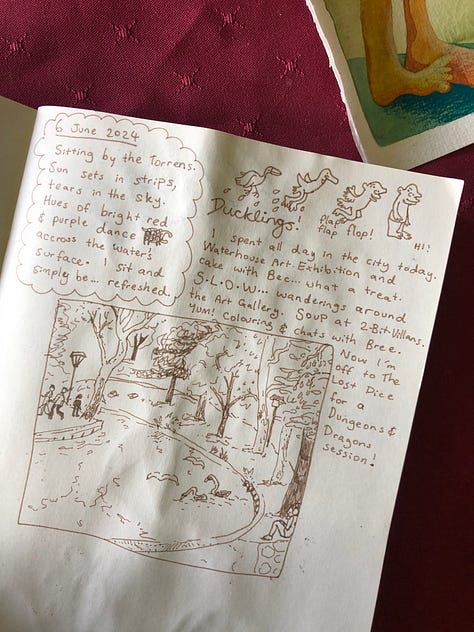 6 June 2024
Sitting by the Torrens.
Sun sets in strips,
tears in the sky.
Hues of bright red
& purple dance
accross the water's
surface. I sit and
simply be... refreshed.
Ducklings!
flap
flap flop!
Hi!
I spent all day in the city today.
Waterhouse Art Exhibition and
cake with Bec... what a treat.
S-L-O-W... wanderings around
the Art Gallery. Soup at 2-Bit Villans.
YUM! colouring & chats with Bree.
Now I'm
off to The
Lost Dice
for a
Dungeons &
Dragons
session!